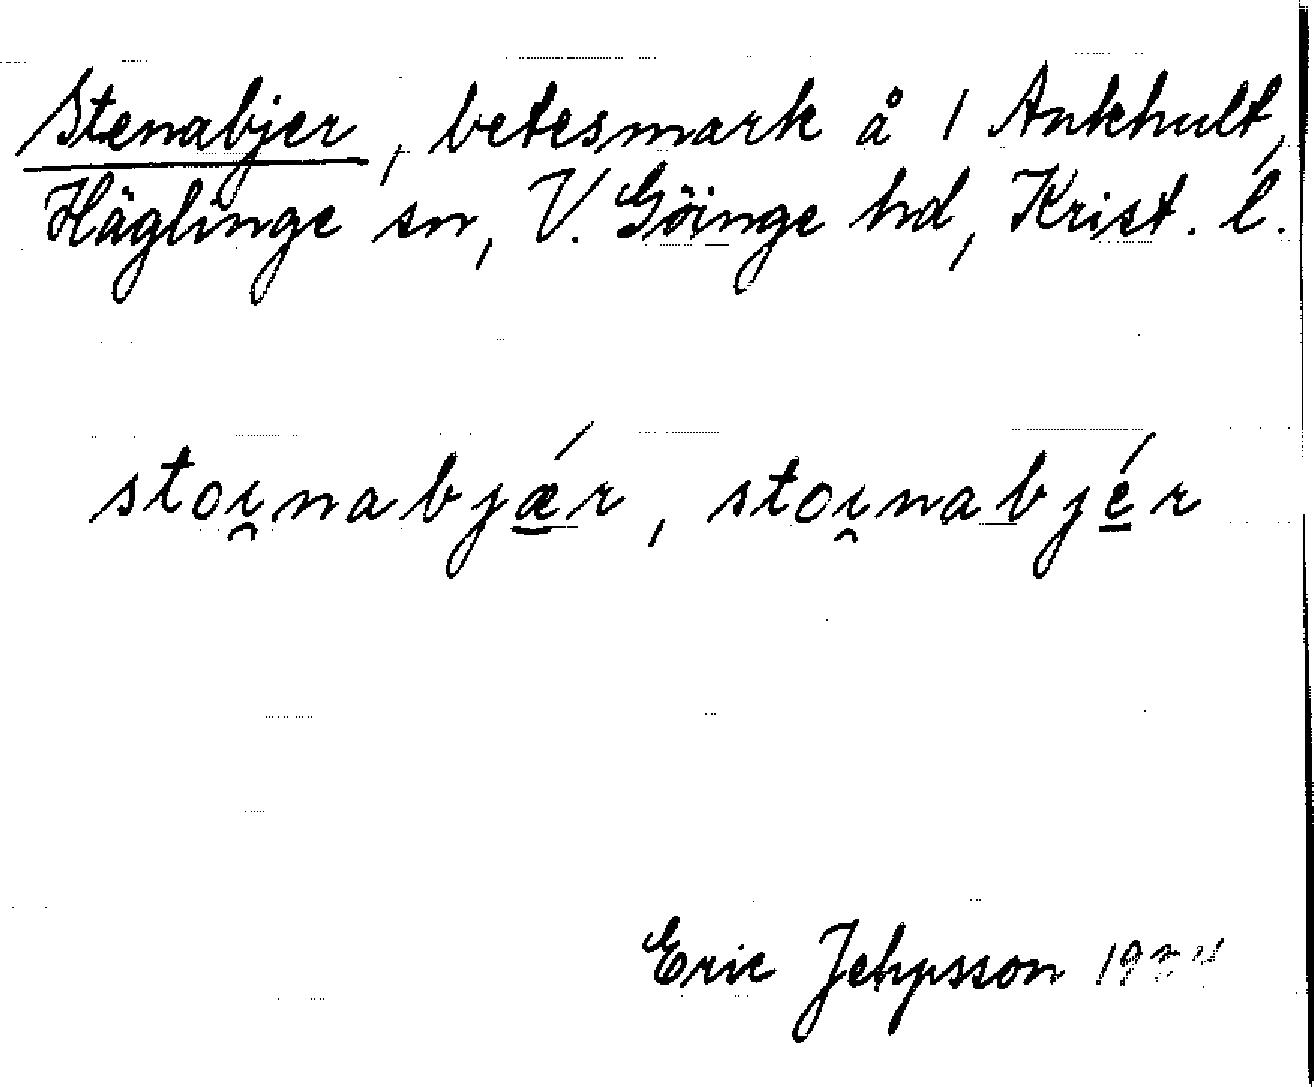 Stenabjer, betesmark å 1 Ankhult,
Häglinge sn, V. Göinge hd, Krist. l.
stoi̯nabjǽ̱r, stoi̯nabjé̱r
Eric Jehpsson 1934